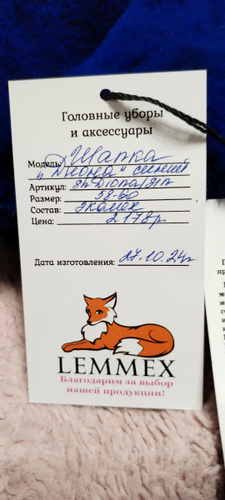 Головные уборы
и аксессуары
Модель: Шапка
"Диона" синий
Артикул:
Размер: 58-60
Состав: экомех
Цена: 2178р.
Дата изготовления: 27.10.24г
LEMMEX
Благодарим за выбор
нашей продукции!